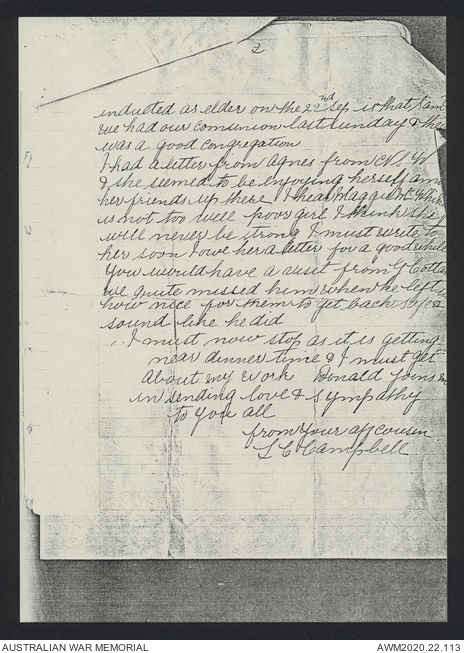 2
inducted as elder on the 22nd Sep is that
we had our comunion last Sunday & there
was a good congregation
I had a letter from Agnes from N.S.W
& she seemed to be enjoying herself
her friends up there I hear Maggie
is not too well poor girl I think she
will never be strong I must write to
her soon I owe her a letter for a good while
You would have a visit from G Cotta
we quite missed him when he left
how nice for them to get back safe &
sound like he did
I must now stop as it is getting
near dinner time & I must get
about my work Donald joins
in sending love & sympathy
to you all
from your aff cousin
L C Campbell
AUSTRALIAN WAR MEMORIAL
AWM2020.22.113